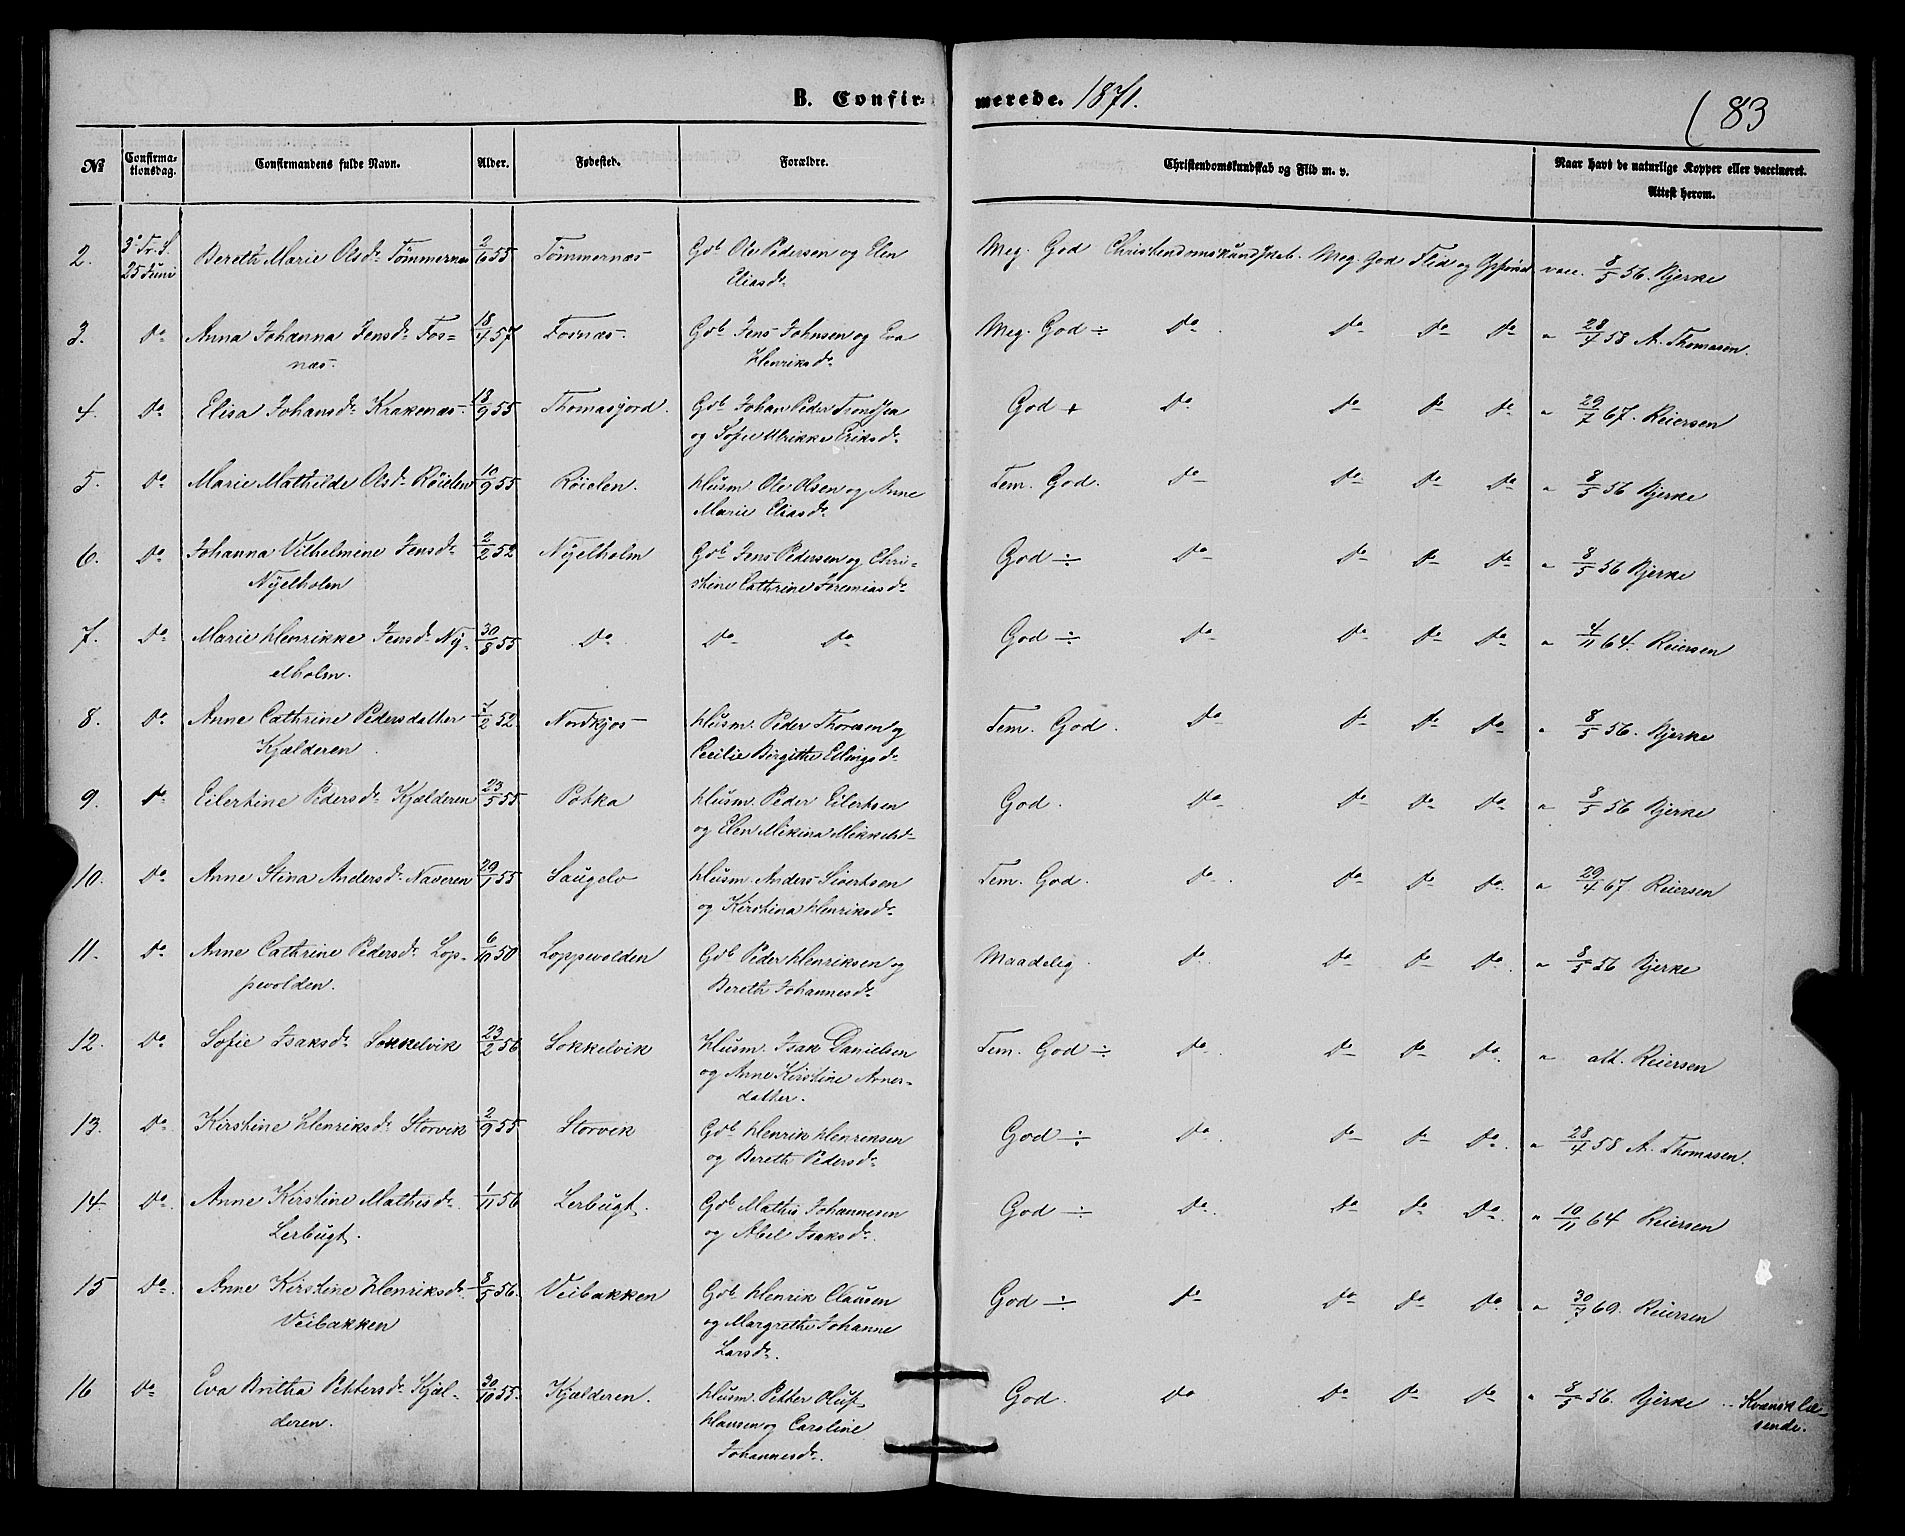 B. Confir- merede. 1871.
83
№
Confirma-
tionsdag.
Confirmandens fulde Navn.
Alder.
Fødested.
Forældre.
Christendomskundskab og Flid m. v.
Naar havt de naturlige Kopper eller vaccineret.
Attest herom.
2. 3die Tr. S. 25 Juni Bereth Marie Olsdr Tømmernæs 2/6 55 Tømmernæs Gdb Ole Pedersen og Elen
Eliasdr
Meg. God Christendomskundskab. Meg. God Flid og Opførsel vacc. 8/5 56. Bjerke
3. Do Anna Johanna Jensdr Fos- 18/4 57 Fosnæs. Gdb Jens Johnsen og Eva
næs. Henriksdr
Meg. God ÷ Do Do Do Do " 28/4 58 A. Thomasen.
4. Do Elisa Johansdr Krakenæs 18/9 55 Thomasjord. Gdb Johan Peder Trondsa
og Sofie Ulrikke Eriksdr
God + Do Do Do Do " 29/7 67. Reiersen
5. Do Marie Mathilde Olsdr Røielen 10/9 55 Røielen. Husm. Ole Olsen og Anne
Marie Eliasdr
Tem. God. Do Do Do Do " 8/5 56 Bjerke
6. Do Johanna Vilhelmine Jensdr 2/2 52 Nyelholm Gdb Jens Pedersen og Chri-
Nyelholm stine Cathrine Jeremiasdr
God ÷ Do Do Do Do " 8/5 56 Bjerke
7. Do Marie Henrikke Jensdr Ny- 30/8 55 Do Do Do
elholm.
God ÷ Do Do Do Do " 4/11 64. Reiersen
8. Do Anne Cathrine Pedersdatter 7/2 52. Nordkjos Husm. Peder Thoresen og
Kjælderen Cecilie Birgithe Edingsdr
Tem. God. Do Do Do Do " 8/5 56. Bjerke
9. Do Eilertine Pedersdr Kjælderen 23/5 55 Potka Husm. Peder Eilertsen
og Elen Mikina Mikkelsdr
God. Do Do Do Do " 8/5 56 Bjerke
10. Do Anne Stina Andersdr Naveren 29/1 55 Saugelv Husm. Anders Sivertsen
og Kirstina Henriksdr
Tem. God. Do Do Do Do " 29/4 67. Reiersen
11. Do Anne Cathrine Pedersdr Lop- 6/10 50 Loppevolden Gdb Peder Henriksen og
pevolden. Bereth Johannesdr
Maadelig Do Do Do Do " 8/5 56 Bjerke
12. Do Sofie Isaksdr Sokkelvik 23/2 56 Sokkelvik Husm. Isak Danielsen
og Anne Kirstine Arner-
datter.
Tem. God ÷ Do Do Do Do " att. Reiersen
13. Do Kirstine Henriksdr Storvik 2/9 55 Storvik Gdb Henrik Henriksen
og Bereth Pedersdr
God ÷ Do Do Do Do " 28/4 58 A. Thomasen.
14. Do Anne Kirstine Mathisdr 1/11 56 Lerbugt. Gdb Mathis Johannesen
Lerbugt. og Abel Isaksdr
God ÷ Do Do Do Do " 10/11 64 Reiersen
15 Do Anne Kirstine Henriksdr 8/5 56. Veibakken Gdb Henrik Clausen
Veibakken og Margrethe Johanne
Larsdr.
God ÷ Do Do Do Do " 30/7 69. Reiersen
16 Do Eva Britha Pettersdr Kjæl- 30/10 55. Kjælderen. Husm. Petter Oluf
deren. Hansen og Caroline
Johannesdr.
God. Do Do Do Do " 8/5 56. Bjerke .. Kvænsk læ-
sende.